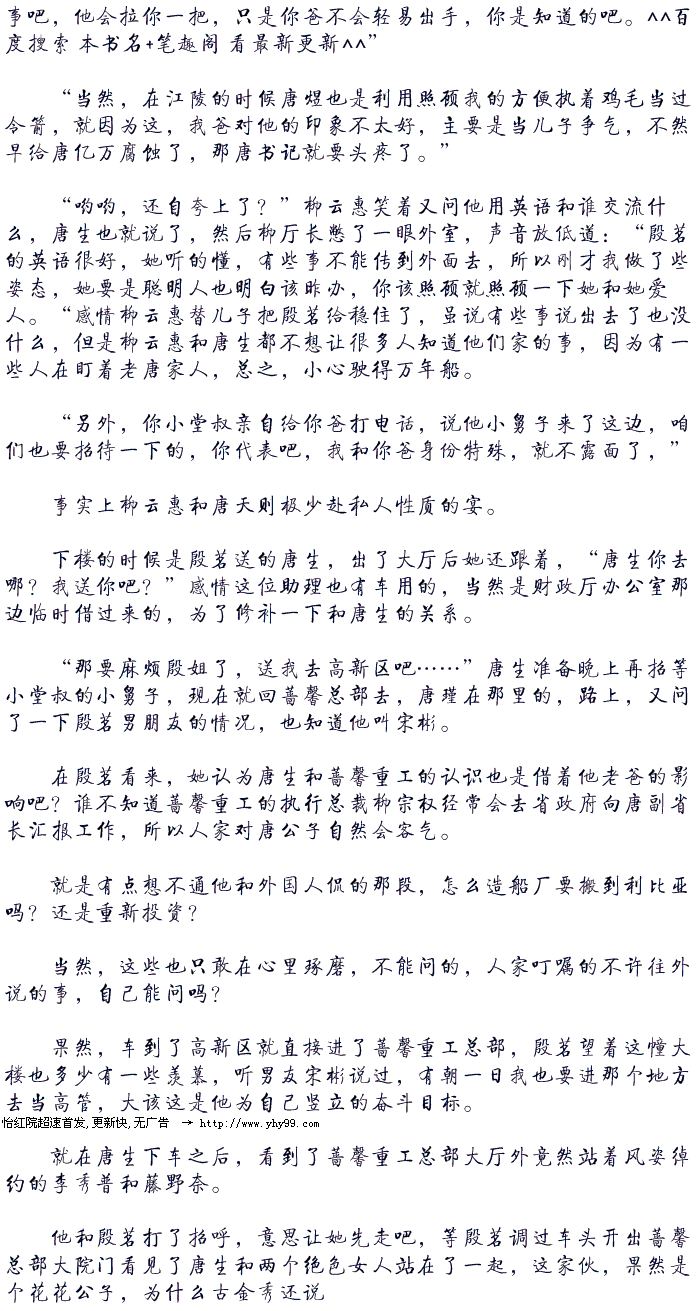 事吧，他会拉你一把，只是你爸不会轻易出手，你是知道的吧。^^百
度搜索 本书名+笔趣阁 看最新更新^^”
“当然，在江陵的时候唐煜也是利用照顾我的方便执着鸡毛当过
令箭，就因为这，我爸对他的印象不太好，主要是当儿子争气，不然
早给唐亿万腐蚀了，那唐书记就要头疼了。”
“哟哟，还自夸上了？”柳云惠笑着又问他用英语和谁交流什
么，唐生也就说了，然后柳厅长憋了一眼外室，声音放低道：“殷茗
的英语很好，她听的懂，有些事不能传到外面去，所以刚才我做了些
姿态，她要是聪明人也明白该咋办，你该照顾就照顾一下她和她爱
人。“感情柳云惠替儿子把殷茗给稳住了，虽说有些事说出去了也没
什么，但是柳云惠和唐生都不想让很多人知道他们家的事，因为有一
些人在盯着老唐家人，总之，小心驶得万年船。
“另外，你小堂叔亲自给你爸打电话，说他小舅子来了这边，咱
们也要招待一下的，你代表吧，我和你爸身份特殊，就不露面了，”
事实上柳云惠和唐天则极少赴私人性质的宴。
下楼的时候是殷茗送的唐生，出了大厅后她还跟着，“唐生你去
哪？我送你吧？”感情这位助理也有车用的，当然是财政厅办公室那
边临时借过来的，为了修补一下和唐生的关系。
“那要麻烦殷姐了，送我去高新区吧……”唐生准备晚上再招等
小堂叔的小舅子，现在就回蔷馨总部去，唐瑾在那里的，路上，又问
了一下殷茗男朋友的情况，也知道他叫宋彬。
在殷茗看来，她认为唐生和蔷馨重工的认识也是借着他老爸的影
响吧？谁不知道蔷馨重工的执行总裁柳宗权经常会去省政府向唐副省
长汇报工作，所以人家对唐公子自然会客气。
就是有点想不通他和外国人侃的那段，怎么造船厂要搬到利比亚
吗？还是重新投资？
当然，这些也只敢在心里琢磨，不能问的，人家叮嘱的不许往外
说的事，自己能问吗？
果然，车到了高新区就直接进了蔷馨重工总部，殷茗望着这幢大
楼也多少有一些羡慕，听男友宋彬说过，有朝一日我也要进那个地方
去当高管，大该这是他为自己竖立的奋斗目标。
怡红院超速首发，更新快，无广告 → http://www.yhy99.com
就在唐生下车之后，看到了蔷馨重工总部大厅外竟然站着风姿绰
约的李秀普和藤野奈。
他和殷茗打了招呼，意思让她先走吧，等殷茗调过车头开出蔷馨
总部大院门看见了唐生和两个绝色女人站在了一起，这家伙，果然是
个花花公子，为什么古金秀还说